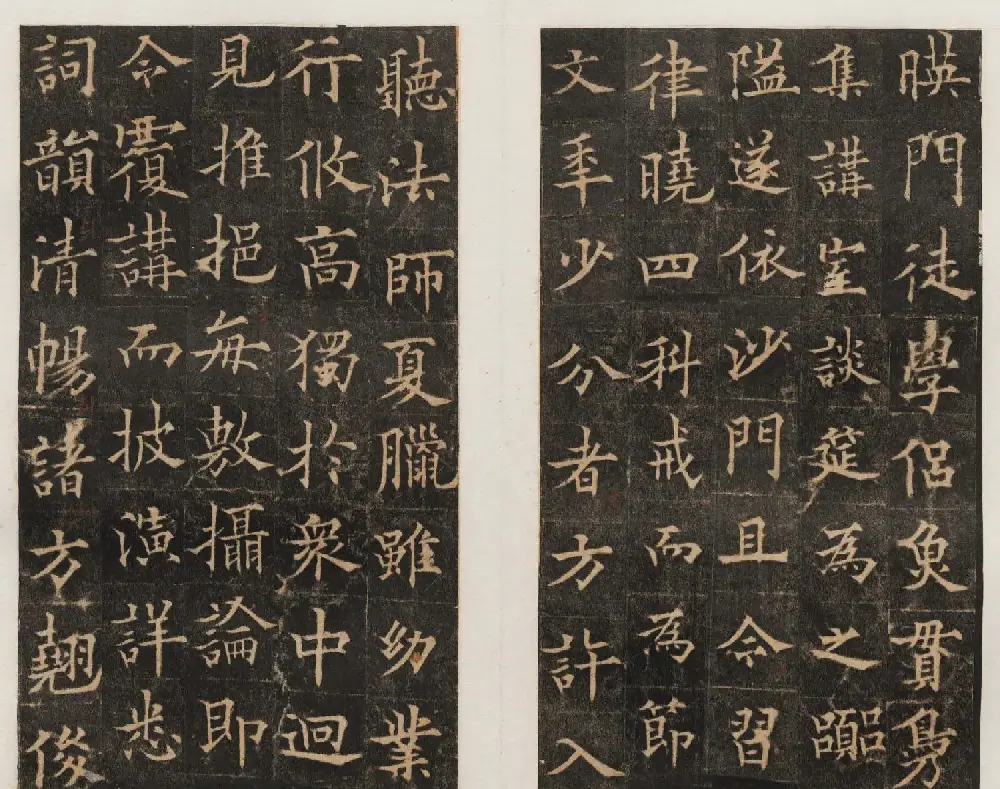 暎門徒學侶魚貫鳧
集講堂談筵為之囂
隘遂依沙門且令習
律曉四科戒而為節
文年少分者方許入
聽法師夏臘雖幼業
行攸高獨於衆中迥
見推挹每敷攝論即
令覆講而披演詳悉
詞韻清暢諸方翹俊